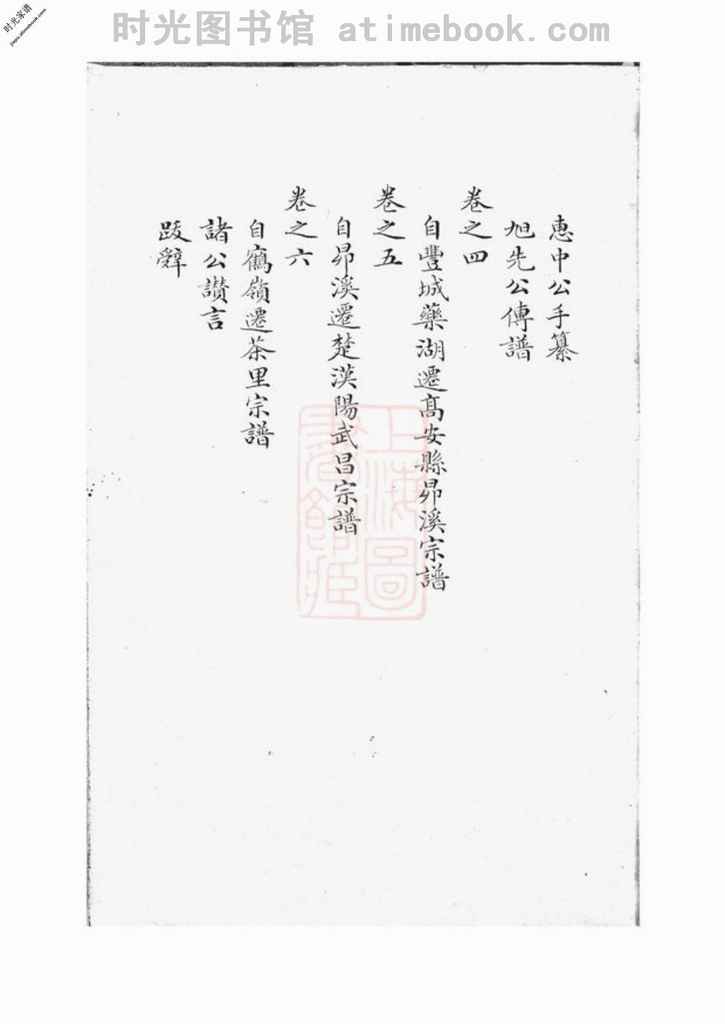 时光家谱
jiapu.atimebook.com
时光图书馆 atimebook.com
惠中公手纂
旭先公傳譜
卷之四
自豐城藥湖遷高安縣昴溪宗譜
卷之五
自昴溪遷楚漢陽武昌宗譜
卷之六
自鶴嶺遷茶里宗譜
諸公讚言
跋辭
上海圖書館藏